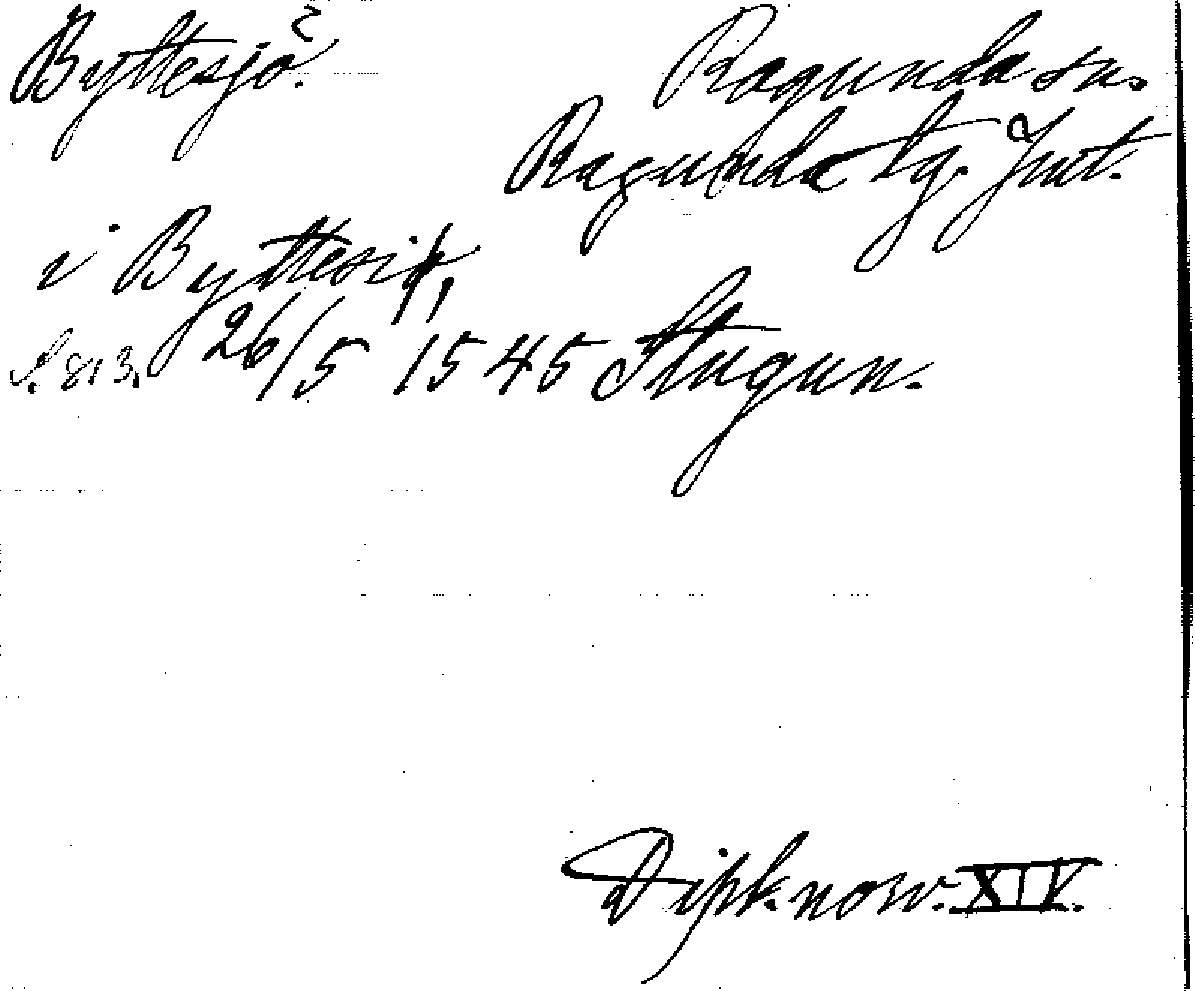 Byttesjö. Ragunda sn.
Ragunda tg. Jmt.
i Byttesiø,
S. 813. 26/5 1545 Stugun.
Dipl. norv. XIV.